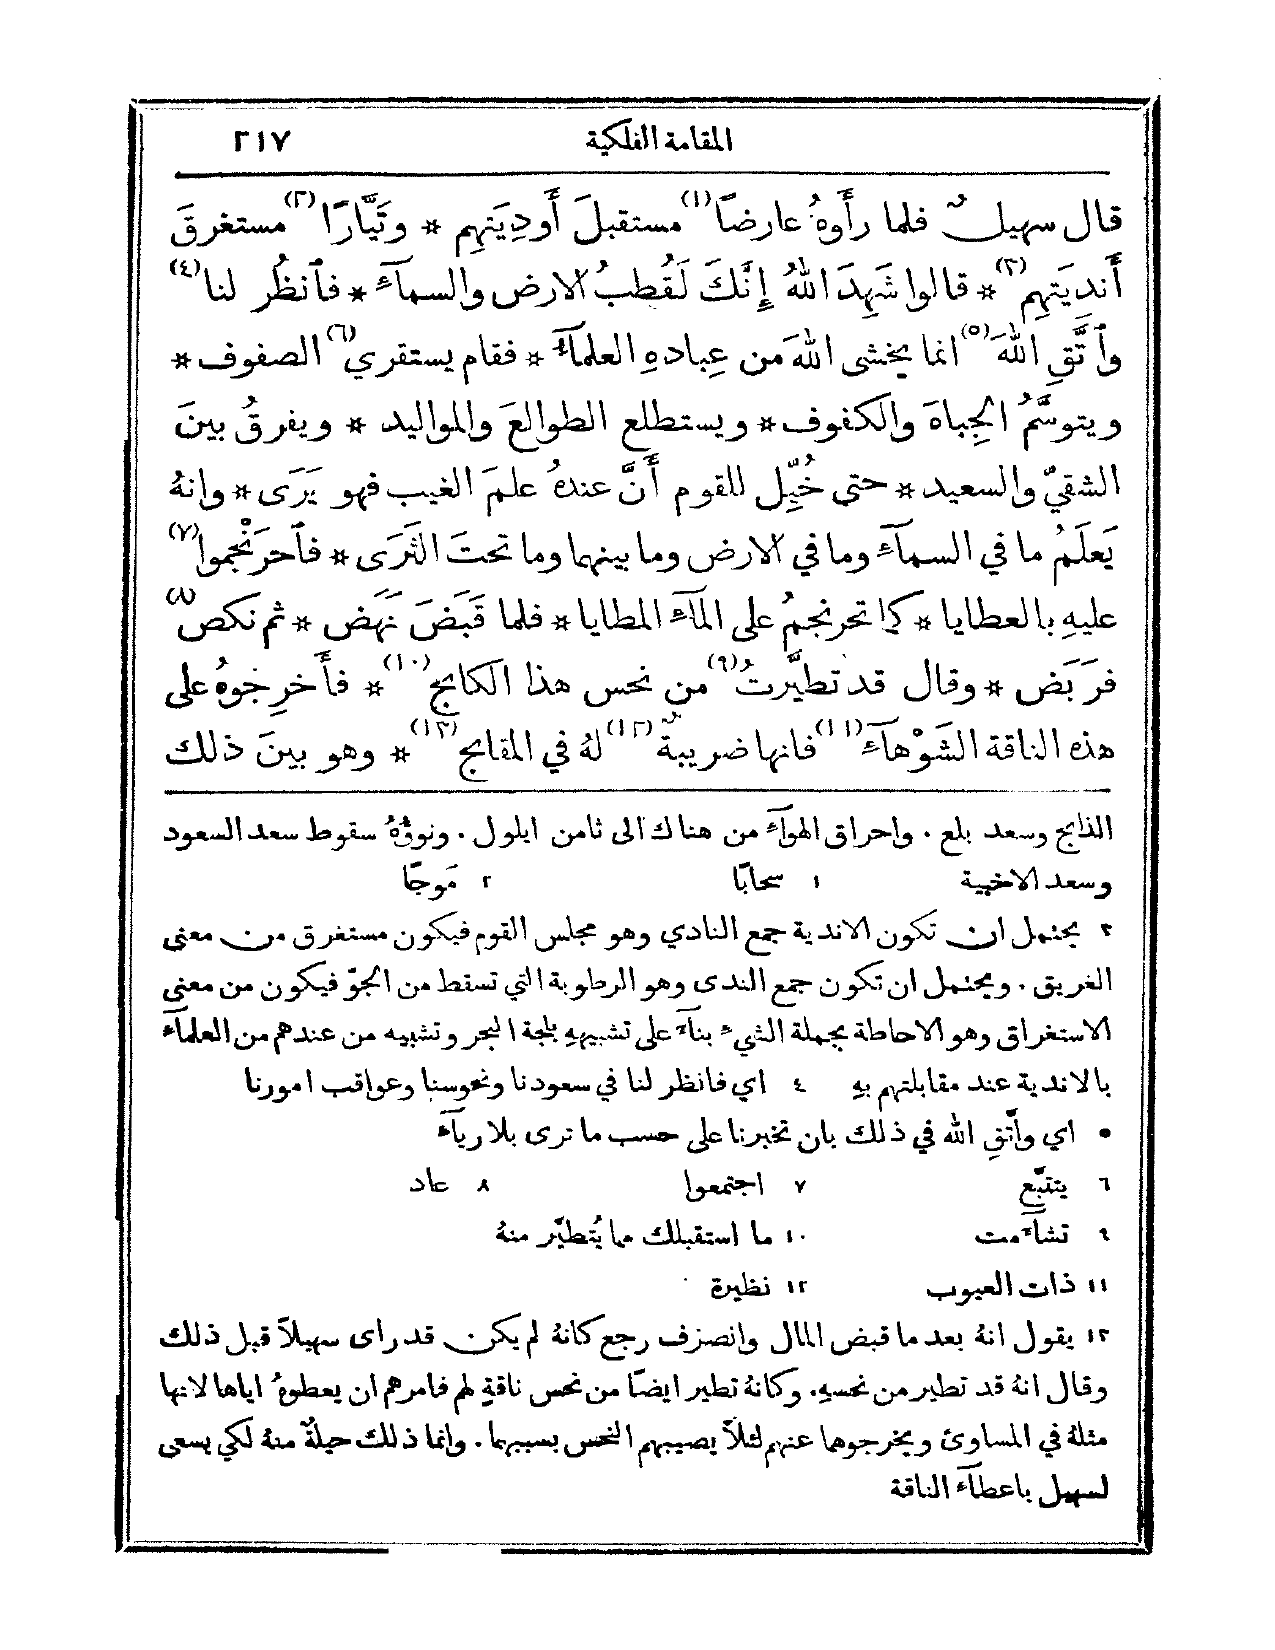 المقامة الفلكية ٢١٧
قال سهيلٌ فلما رأَوهُ عارضًا(١) مستقبلَ أَودِيَتِهِم * وتَيَّارًا(٢) مستغرِقَ
أَنديَتِهِم(٣) * قالوا شَهِدَ اللهُ إِنَّكَ لَقُطبُ الارض والسماءِ * فاَنظُر لنا(٤)
واَتَّقِ اللهَ(٥) انما يخشى اللهَ من عِبادهِ العلماءُ * فقام يستقري(٦) الصفوف *
ويتوسَّمُ الجِباهَ والكفوف * ويستطلع الطوالعَ والمواليد * ويفرقُ بينَ
الشقيِّ والسعيد * حتى خُيِّل للقوم أَنَّ عندهُ علمَ الغيب فهو يَرَى * وانهُ
يَعلَمُ ما في السماءِ وما في الارض وما بينها وما تحتَ الثَرَى * فاَحرَنْجَموا(٧)
عليهِ بالعطايا * كما تحرنجمُ على المآءِ المطايا * فلما قَبَضَ نَهَض * ثم نكص(٨)
فرَبَض * وقال قد تطيَّرتُ(٩) من نحس هذا الكابح(١٠) * فأَخرِجوهُ على
هذه الناقة الشَوْهآءِ(١١) فانها ضريبةٌ(١٢) لهُ في المقابح(١٣) * وهو بينَ ذلك
الذابح وسعد بلع . واحراق الهوآءِ من هناك الى ثامن ايلول . ونوءُهُ سقوط سعد السعود
وسعد الاخبية ١ سحابًا ٢ مَوجًا
٣ يحتمل ان تكون الاندية جمع النادي وهو مجلس القوم فيكون مستغرق من معنى
الغريق . ويحتمل ان تكون جمع الندى وهو الرطوبة التي تسقط من الجوّ فيكون من معنى
الاستغراق وهو الاحاطة بجملة الشيء بنآءً على تشبيههِ بلجة البحر وتشبيه من عندهم من العلمآءِ
بالاندية عند مقابلتهم بهِ ٤ اي فانظر لنا في سعودنا ونحوسنا وعواقب امورنا
• اي واَتَّقِ الله في ذلك بان تخبرنا على حسب ما ترى بلا ريآءٍ
٦ يتتبَّع ٧ اجتمعوا ٨ عاد
٩ تشآءمت ١٠ ما استقبلك مما يُتطيَّر منهُ
١١ ذات العيوب ١٢ نظيرة
١٣ يقول انهُ بعد ما قبض المال وانصرف رجع كانهُ لم يكن قد راى سهيلاً قبل ذلك
وقال انهُ قد تطير من نحسهِ. وكانهُ تطير ايضًا من نحس ناقةٍ لهم فامرهم ان يعطوهُ اياها لانها
مثلهُ في المساوئ ويخرجوها عنهم لئلاَّ يصيبهم النحس بسببهما . وانما ذلك حيلةٌ منهُ لكي يسعى
لسهيل باعطآءِ الناقة